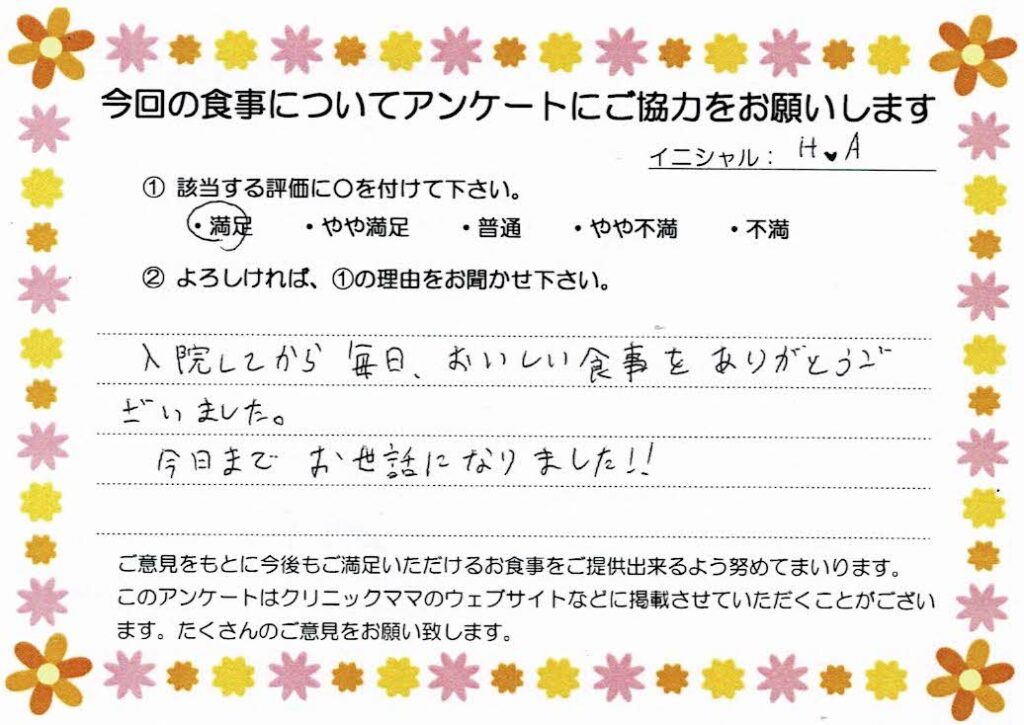 今回の食事についてアンケートにご協力をお願いします
イニシャル： H♥A
① 該当する評価に○を付けて下さい。
・満足 ・やや満足 ・普通 ・やや不満 ・不満
② よろしければ、①の理由をお聞かせ下さい。
入院してから毎日、おいしい食事をありがとうご
ざいました。
今日までお世話になりました!!
ご意見をもとに今後もご満足いただけるお食事をご提供出来るよう努めてまいります。
このアンケートはクリニックママのウェブサイトなどに掲載させていただくことがござい
ます。たくさんのご意見をお願い致します。